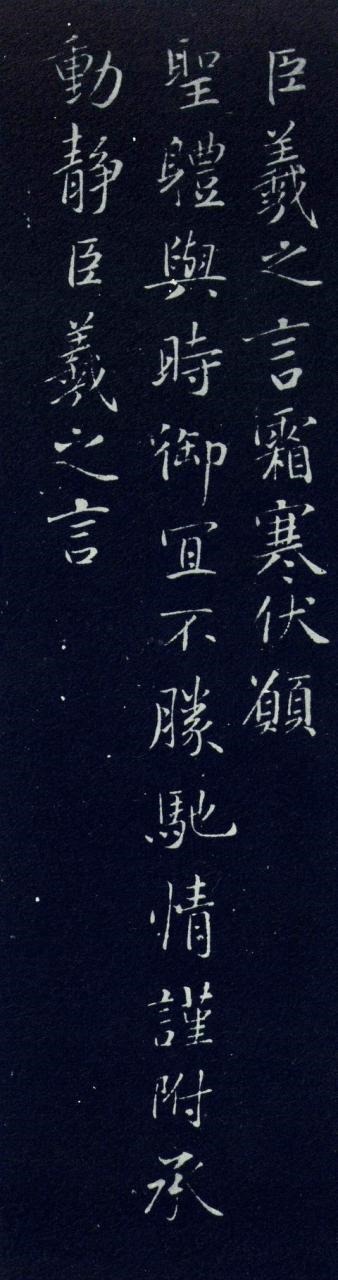 臣羲之言霜寒伏願
聖軆與時御宜不勝馳情謹附承
動靜臣羲之言